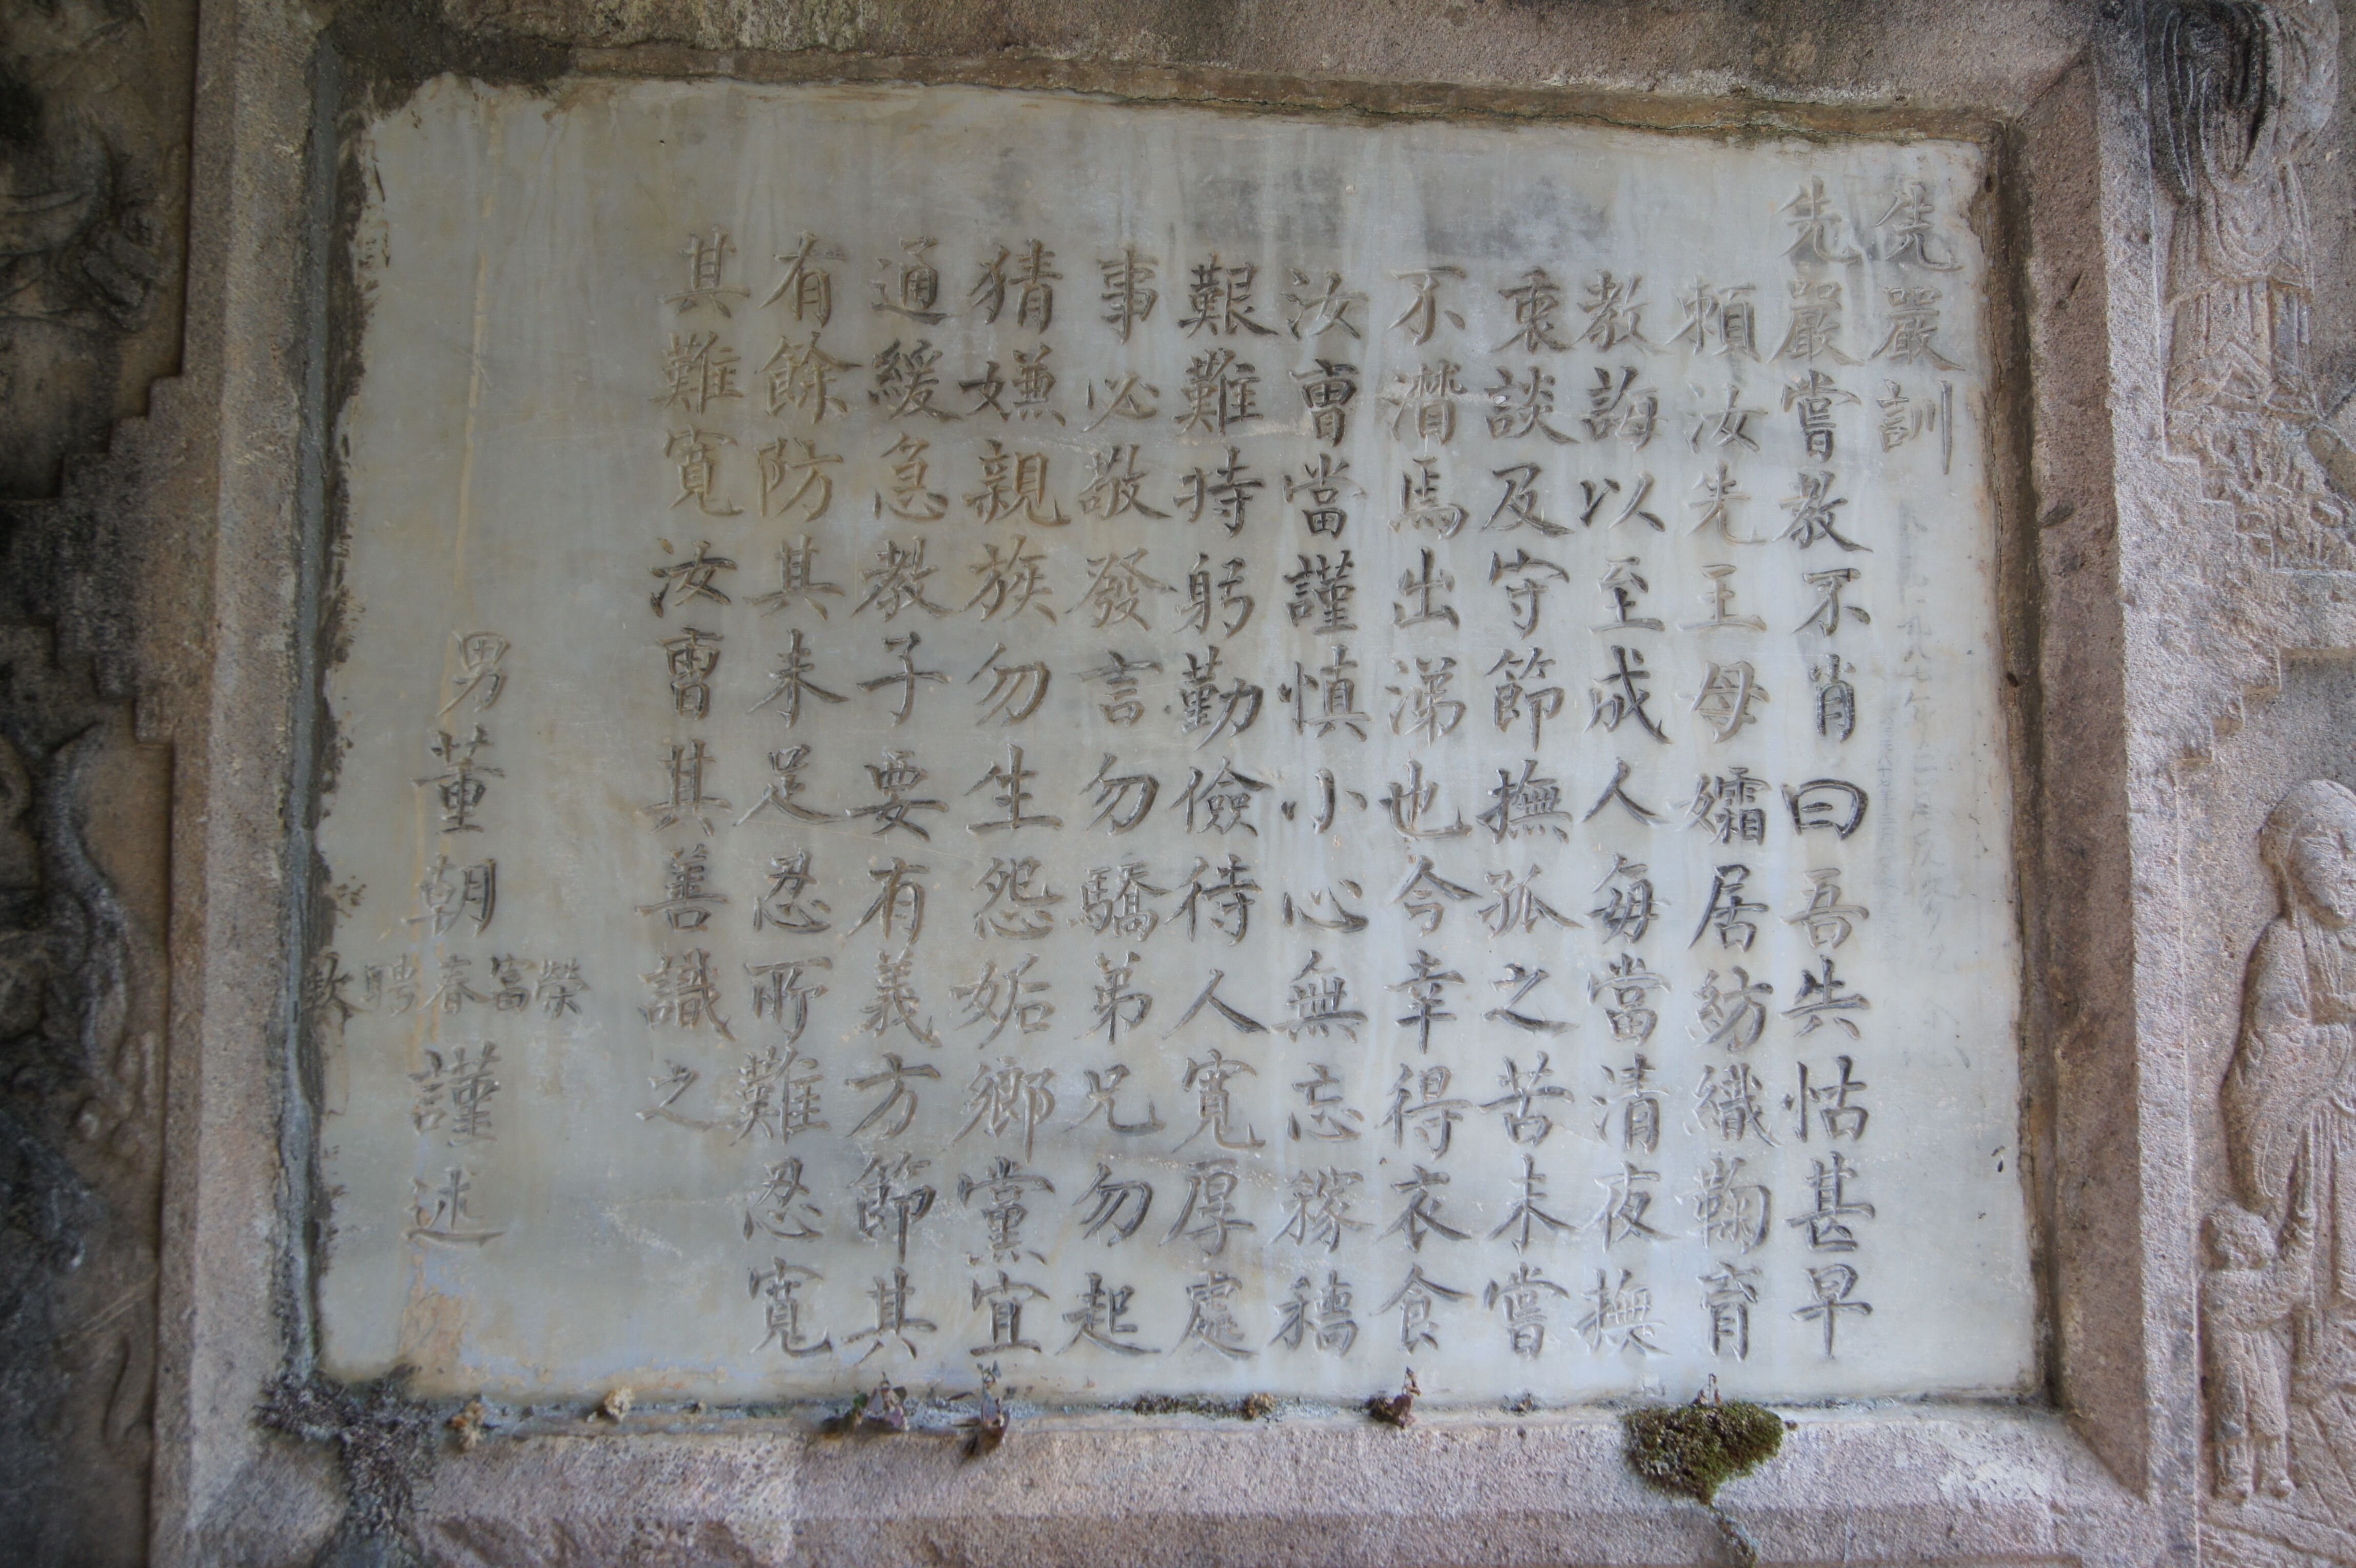 先嚴訓
先嚴嘗教不肖曰吾失怙甚早
頼汝先王母孀居紡織鞠育
教誨以至成人每當清夜撫
衷談及守節撫孤之苦未嘗
不潸焉出涕也今幸得衣食
汝曹當謹慎小心無忘稼穡
艱難持躬勤儉待人寬厚處
事必敬發言勿驕弟兄勿起
猜嫌親族勿生怨妬鄉黨宜
通緩急教子要有義方節其
有餘防其未足忍所難忍寬
其難寬汝曹其善識之
男董朝榮富春聘欽謹述